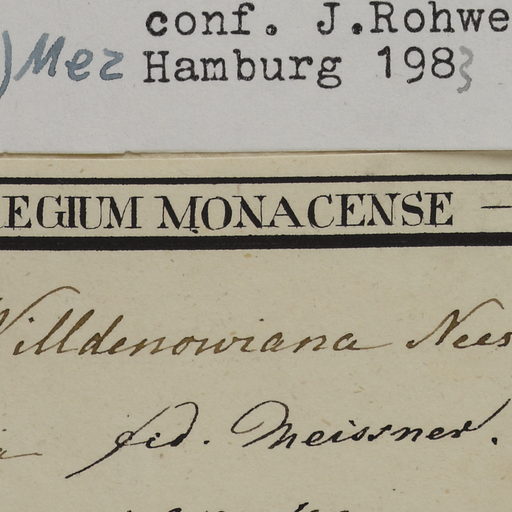 conf. J.Rohwe
) Mez Hamburg 1983
EGIUM MONACENSE —
Willdenowiana Nees
fid. Meissner.